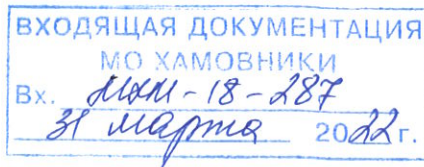 ВХОДЯЩАЯ ДОКУМЕНТАЦИЯ
МО ХАМОВНИКИ
Вх. МХМ-18-287
31 марта 2022 г.